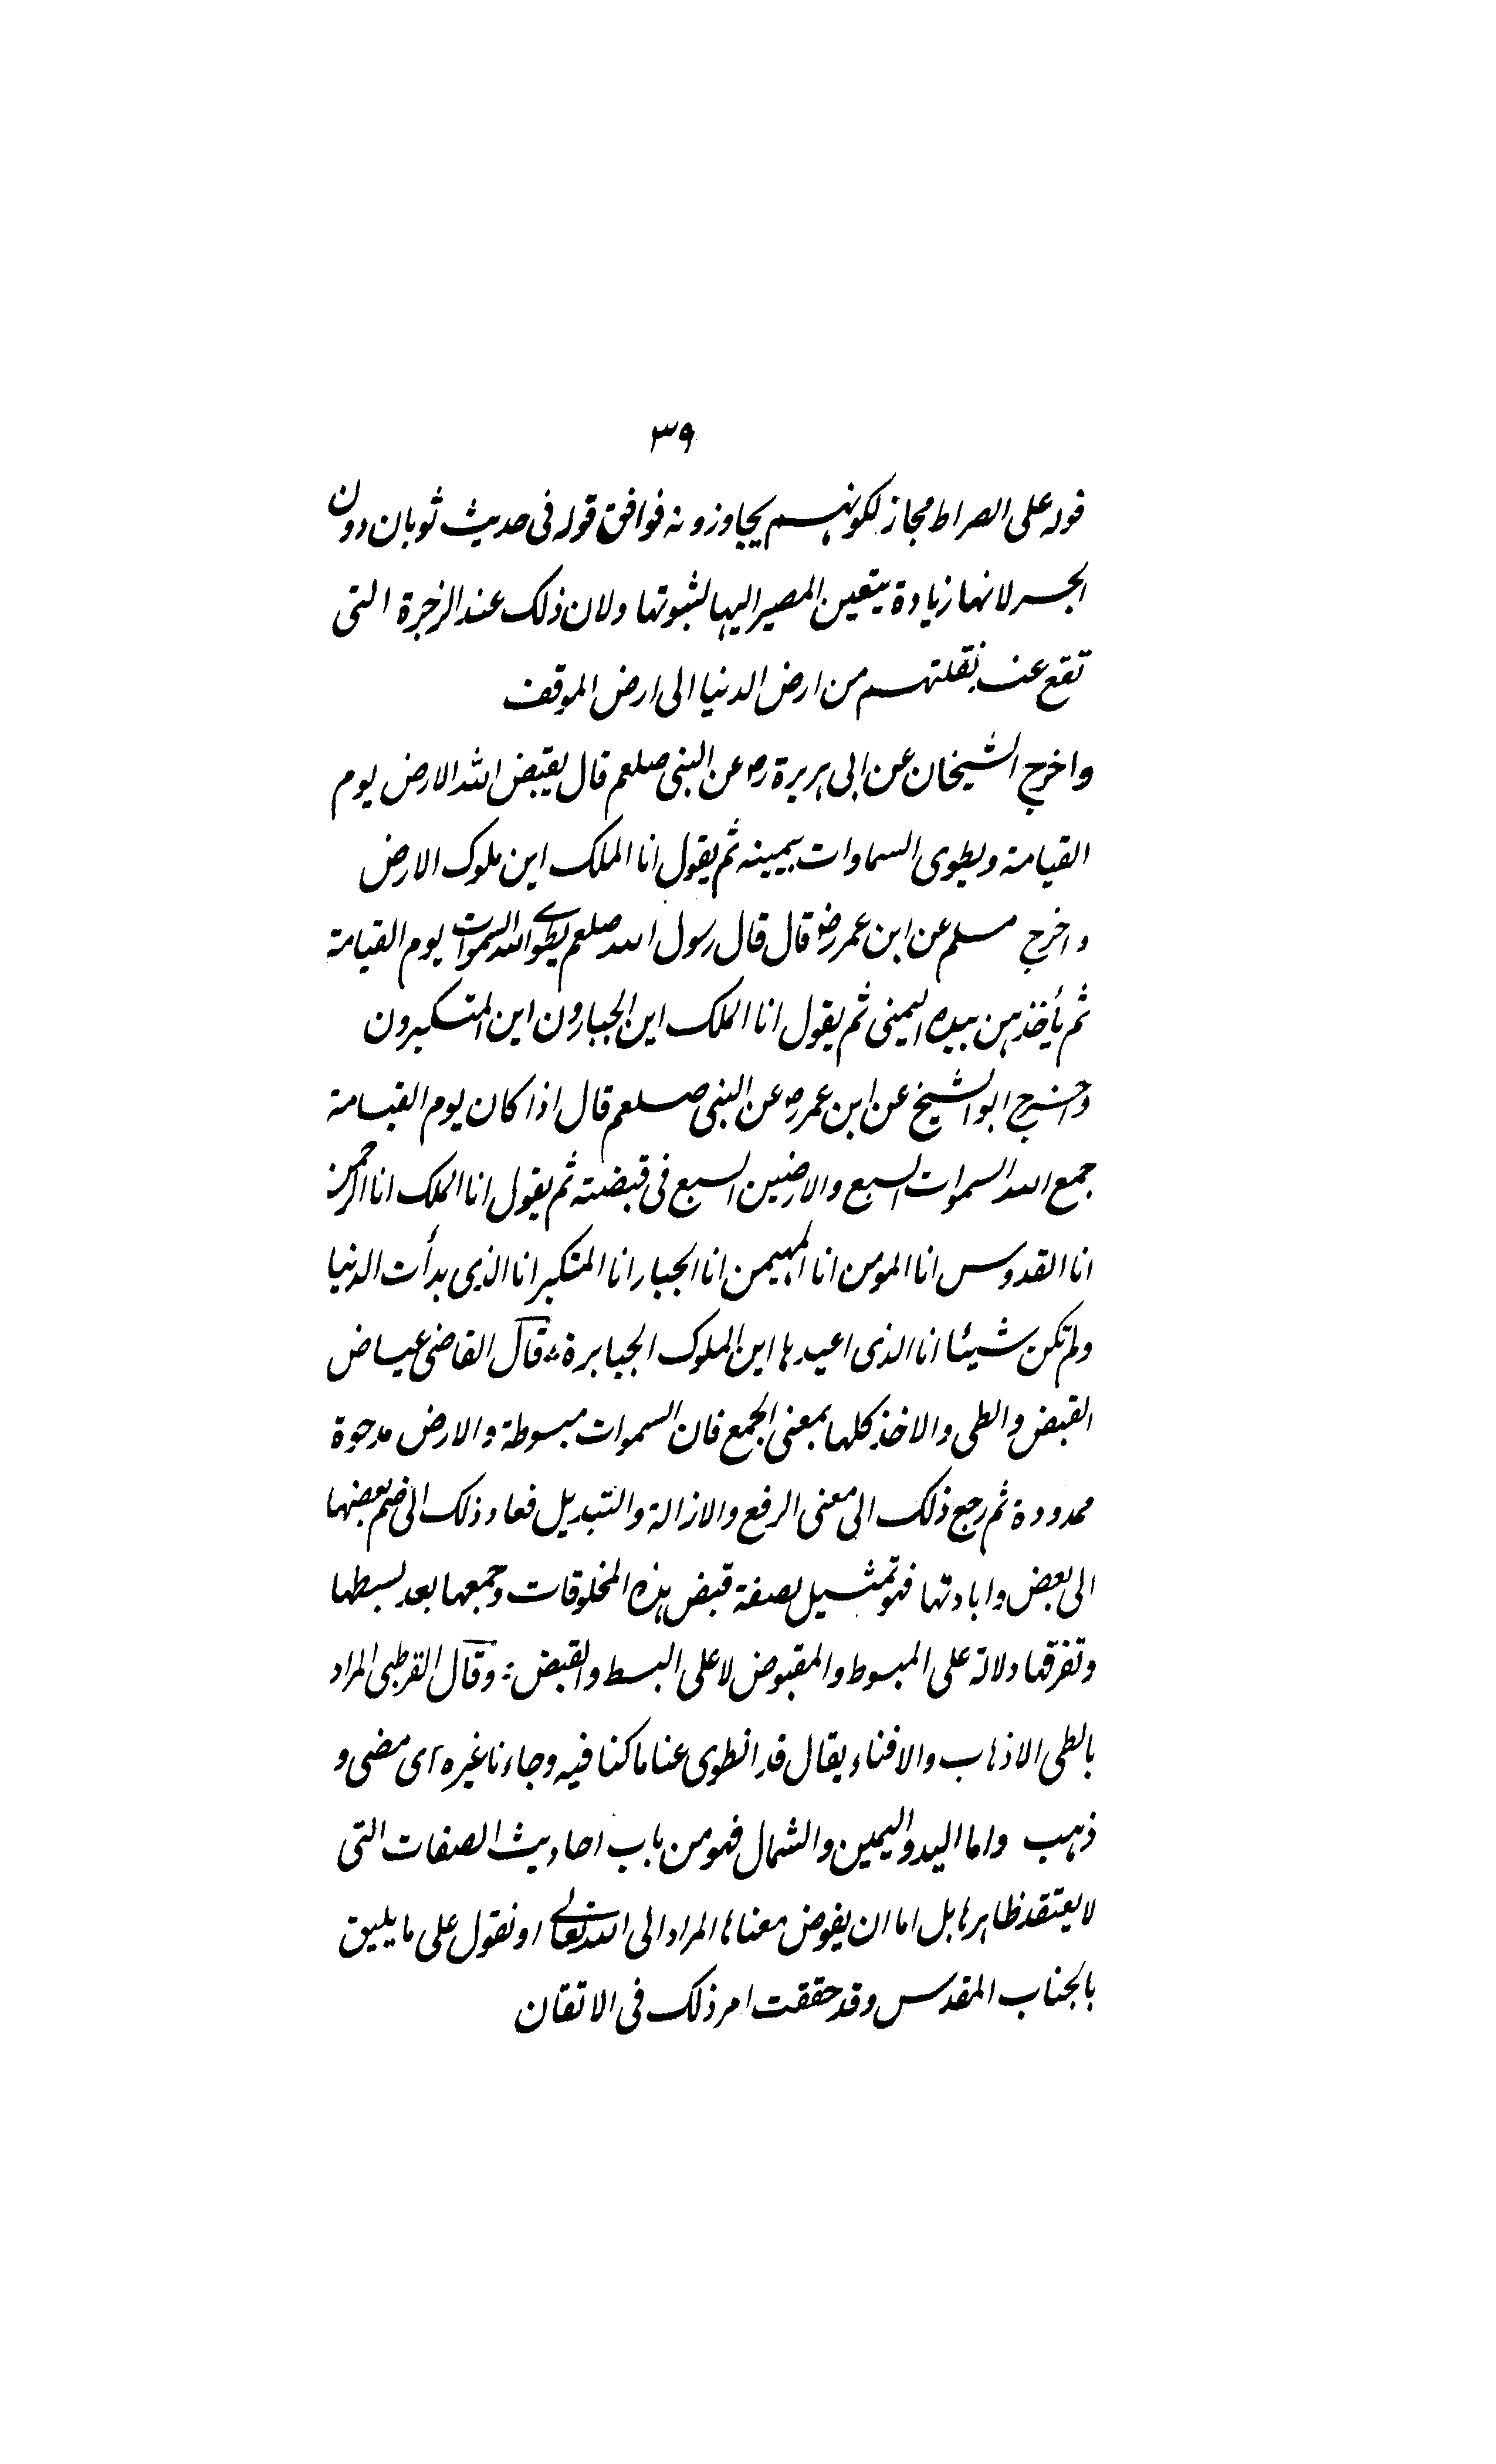 ٣٩
قوله على الصراط مجاز لكونهم يجاوزونه فوافق قوله فى حديث ثوبان دون
الجسر لانها زيادة يتعين المصير اليها لثبوتها ولان ذلك عند الزجرة التى
تقع عند نقلتهم من ارض الدنيا الى ارض الموقف
واخرج الشيخان عن ابى هريرة رض عن النبى صلعم قال يقبض الله الارض يوم
القيامة ويطوى السماوات بيمينه ثم يقول انا الملك اين ملوك الارض
واخرج مسلم عن ابن عمر رض قال قال رسول الله صلعم يطوى الله السموات يوم القيامة
ثم يأخذهن بيده اليمنى ثم يقول انا الملك اين الجبارون اين المتكبرون
واخرج ابو الشيخ عن ابن عمر رض عن النبى صلعم قال اذا كان يوم القيامة
جمع الله السموات السبع والارضين السبع فى قبضته ثم يقول انا الملك انا الرحمن
انا القدوس انا المومن انا المهيمن انا الجبار انا المتكبر انا الذى بدأت الدنيا
ولم تكن شيئا انا الذى اعيدها اين الملوك الجبابرة ؞ قال القاضى عياض
القبض والطى والاخذ كلها بمعنى الجمع فان السموات مبسوطة والارض مدحوة
ممدودة ثم رجع ذلك الى معنى الرفع والازالة والتبديل فعاد ذلك الى ضم بعضها
الى بعض وابادتها فهو تمثيل لصفة قبض هذه المخلوقات وجمعها بعد بسطها
وتفرقها دلالة على المبسوط والمقبوض لا على البسط والقبض ؞ وقال القرطبى المراد
بالطى الاذهاب والافناء يقال قد انطوى عنا ما كنا فيه وجاءنا غيره اى مضى و
ذهب واما اليد واليمين والشمال فهو من باب احاديث الصفات التى
لا يعتقد ظاهرها بل اما ان يفوض معناها المراد الى الله تعالى او نقول على ما يليق
بالجناب المقدس وقد حققت امر ذلك فى الاتقان